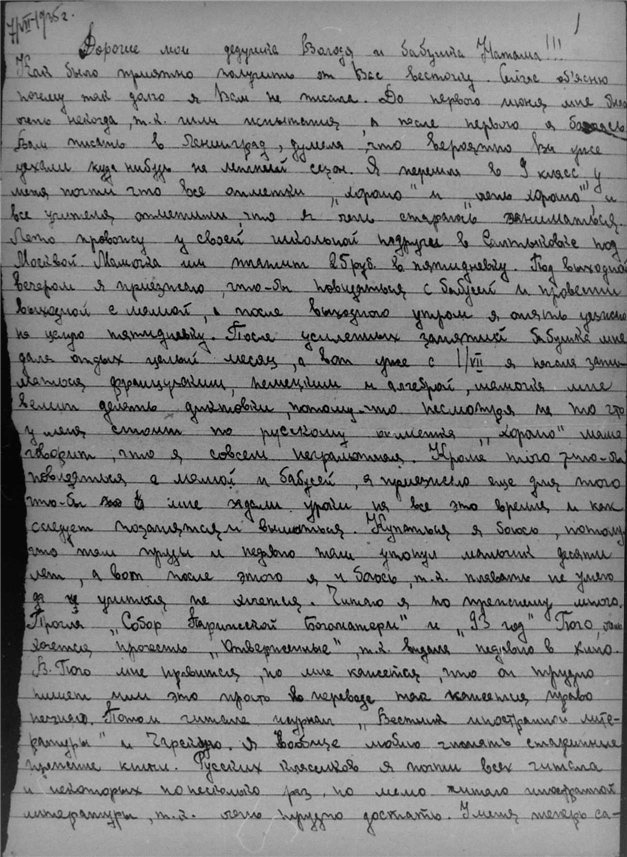 7/VII-1935г. 1
Дорогие мои дедушка Володя и бабушка Наташа!!!
Как было приятно получить от Вас весточку. Сейчас об'ясню
почему так долго я Вам не писала. До первого июня мне было
очень некогда, т.к. шли испытания, а после первого я боялась
Вам писать в Ленинград, думала, что вероятно Вы уже
уехали куда нибудь на летний сезон. Я перешла в 9 класс у
меня почти что все отметки „хорошо" и „очень хорошо" и
все учителя отметили, что я стараюсь заниматься.
Лето провожу у своей школьной подруги в Салтыковке под
Москвой. Мамочка им платит 25 руб. в пятидневку. Под выходной
вечером я приезжаю, что-бы повидаться с бабусей и провести
выходной с мамой, а после выходного утром я опять уезжаю
на целую пятидневку. После усиленных занятий бабушка мне
дала отдых целый месяц, а вот уже с 1/VII я начала зани-
маться французским, немецким и алгеброй, мамочка мне
велит делать диктовки, потому-что несмотря на то что
у меня стоит по русскому отметка „хорошо" мама
говорит, что я совсем неграмотная. Кроме того что-бы
повидаться с мамой и бабусей, я приезжаю еще для того
что-бы мне задали уроки на все это время и как
следует позаняться и вымыться. Купаться я боюсь, потому
что там пруды и недавно там утонул мальчик десяти
лет, а вот после этого я и боюсь, т.к. плавать не умею
да и учиться не хочется. Читаю я по прежнему много.
Прочла „Собор Парижской Богоматери" и „93 год" Гюго, очень
хочется прочесть „Отверженные", т.к. видела недавно в кино.
В. Гюго мне нравится, но мне кажется, что он трудно
пишет или это просто в переводе так кажется право
незнаю. Потом читала журнал „Вестник иностранной лите-
ратуры" и я вообще люблю читать старинные
книги. Русских классиков я почти всех читала
и некоторых по несколько раз, но мало читаю иностранной
литературы, т.к. очень трудно достать. У меня теперь са-